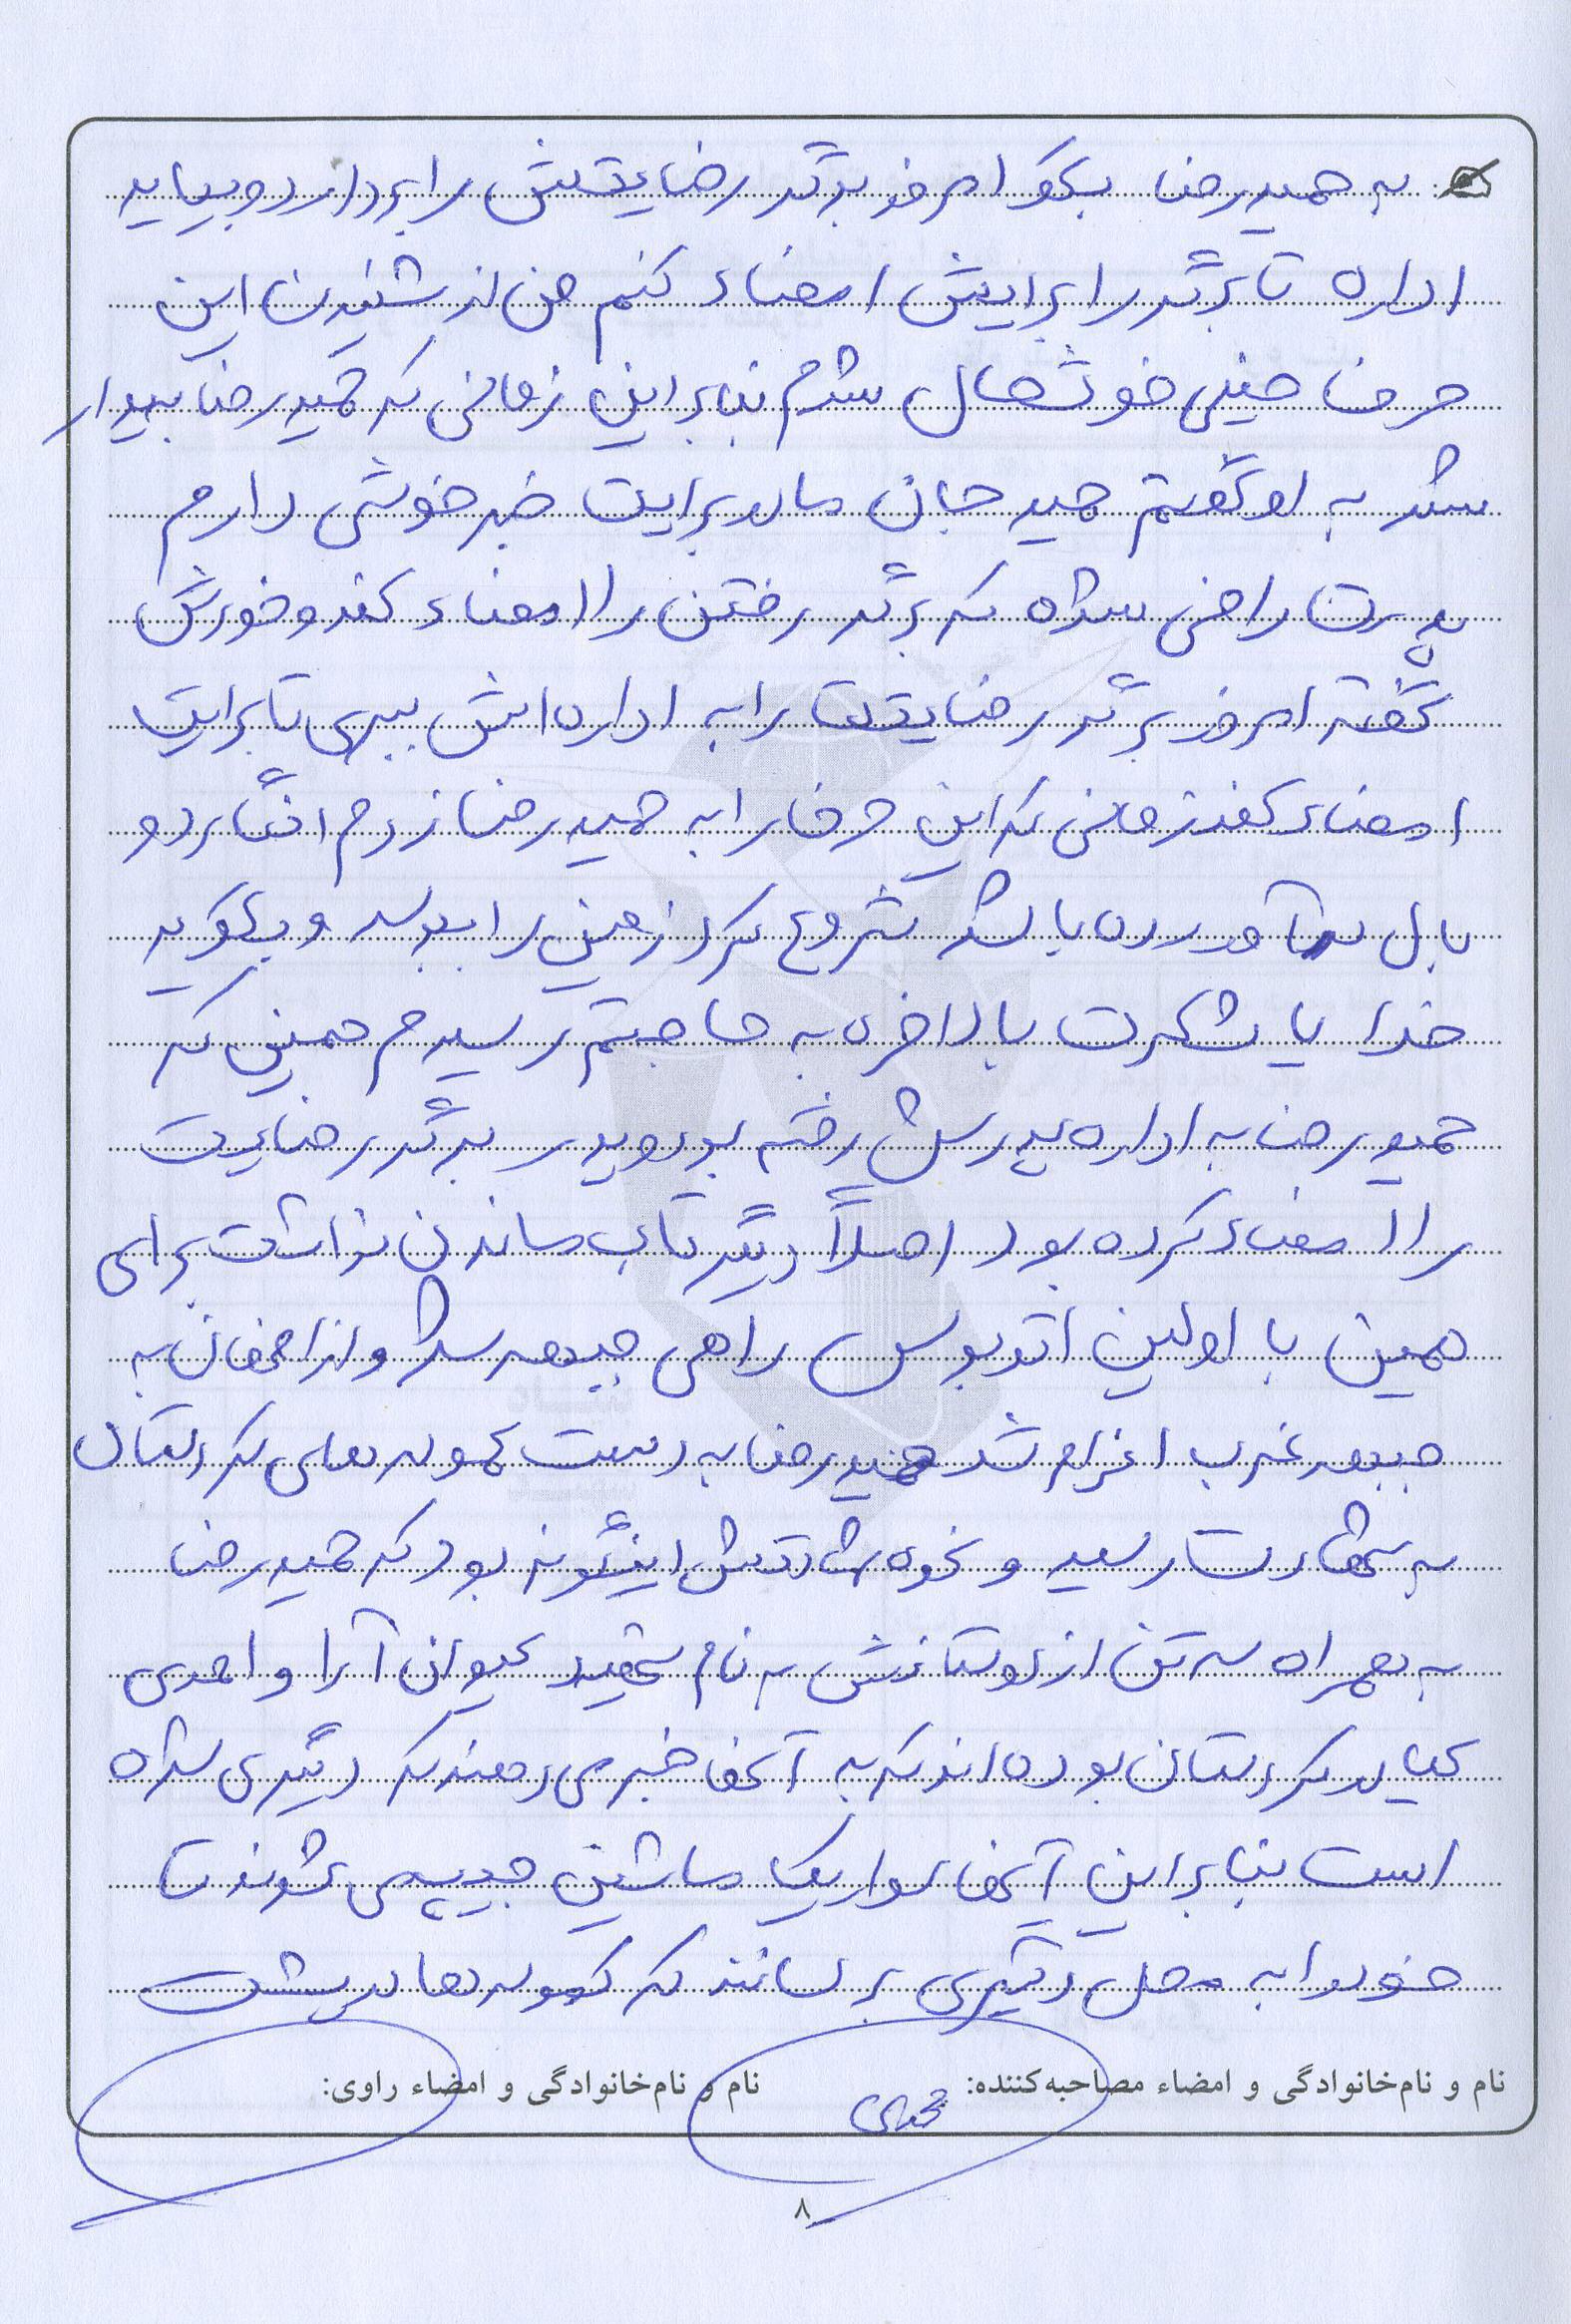 به حمیدرضا بگو امروز برگه رضایتش را بردارد و بیاید
اداره تا برگه را برایش امضاء کنم من از شنیدن این
حرف خیلی خوشحال شدم بنابراین زمانی که حمیدرضا بیدار
شد به او گفتم حمید جان مادر برایت خبر خوشی دارم
پدرت راضی شده که برگه رفتن را امضاء کند و خودش
گفته امروز برگه رضایتت را به اداره اش ببری تا برایت
امضاء کند زمانی که این حرف را به حمیدرضا زدم انگار دو
بال در آورده باشد شروع کرد زمین را ببوسد و بگوید
خدا یا شکرت بالاخره به حاجتم رسیدم همین که
حمیدرضا به اداره پدرش رفته بود و پدر برگه رضایت
را امضاء کرده بود اصلاً دیگر تاب ماندن نداشت برای
همین با اولین اتوبوس راهی جبهه شد و از اصفهان به
جبهه غرب اعزام شد حمیدرضا به دست کموله های کردستان
به شهادت رسید و نحوه شهادتش اینگونه بود که حمیدرضا
به همراه سه تن از دوستانش به نام شهید کیوان آرا و احمدی
کیا در کردستان بوده اند که به آنها خبر می دهند که درگیری شده
است بنابراین آنها سوار یک ماشین جیپ می شوند تا
خود را به محل درگیری برسانند که کموله ها در پشت
نام و نام‌خانوادگی و امضاء مصاحبه‌کننده: نام و نام‌خانوادگی و امضاء راوی:
۸